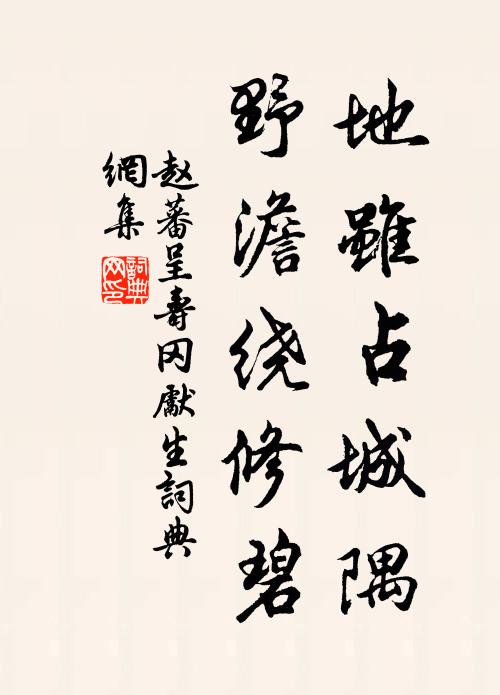 地雖占城隅
野澹绕修碧
赵蕃呈壽冈獻生詞典
網集
詞典
网印